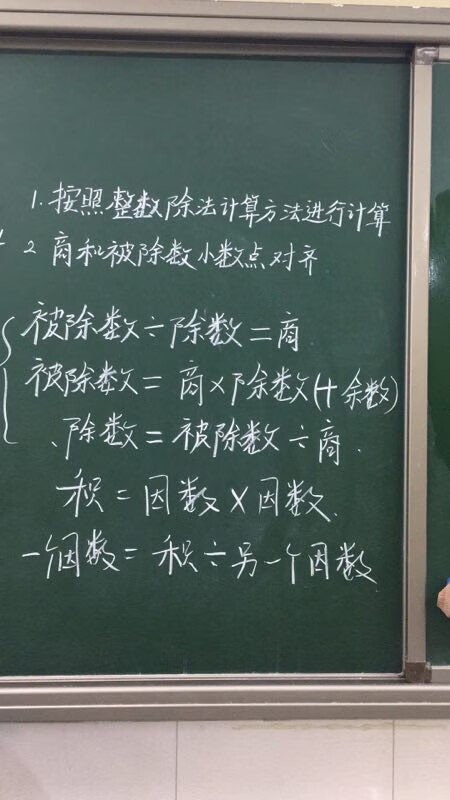 1.按照整数除法计算方法进行计算
2 商和被除数小数点对齐
被除数÷除数=商
被除数=商×除数(+余数)
、除数=被除数÷商.
积=因数×因数.
一个因数=积÷另一个因数